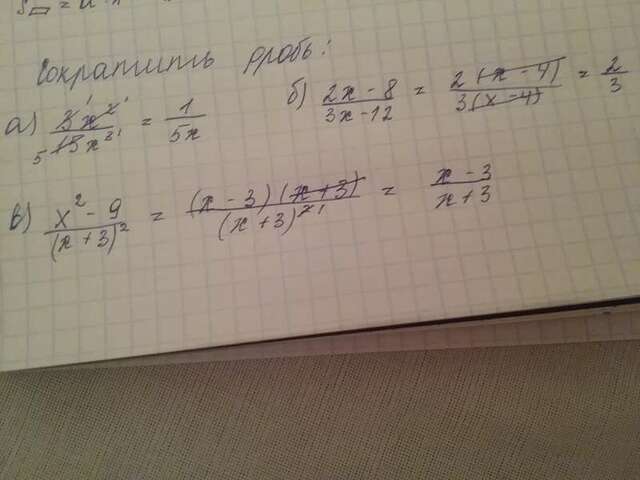 Сократить дробь:
а) 3x² / 15x³ = 1 / 5x
б) 2x - 8 / 3x - 12 = 2 (x - 4) / 3 (x - 4) = 2 / 3
в) x² - 9 / (x + 3)² = (x - 3) (x + 3) / (x + 3)² = x - 3 / x + 3